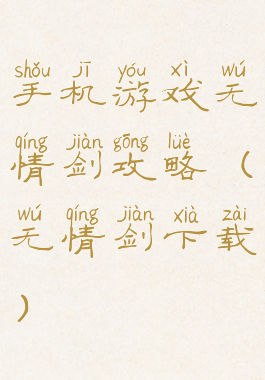 shǒu jī yóu xì wú
手机游戏无
qíng jiàn gōng lüè
情剑攻略（
wú qíng jiàn xià zài
无情剑下载
）